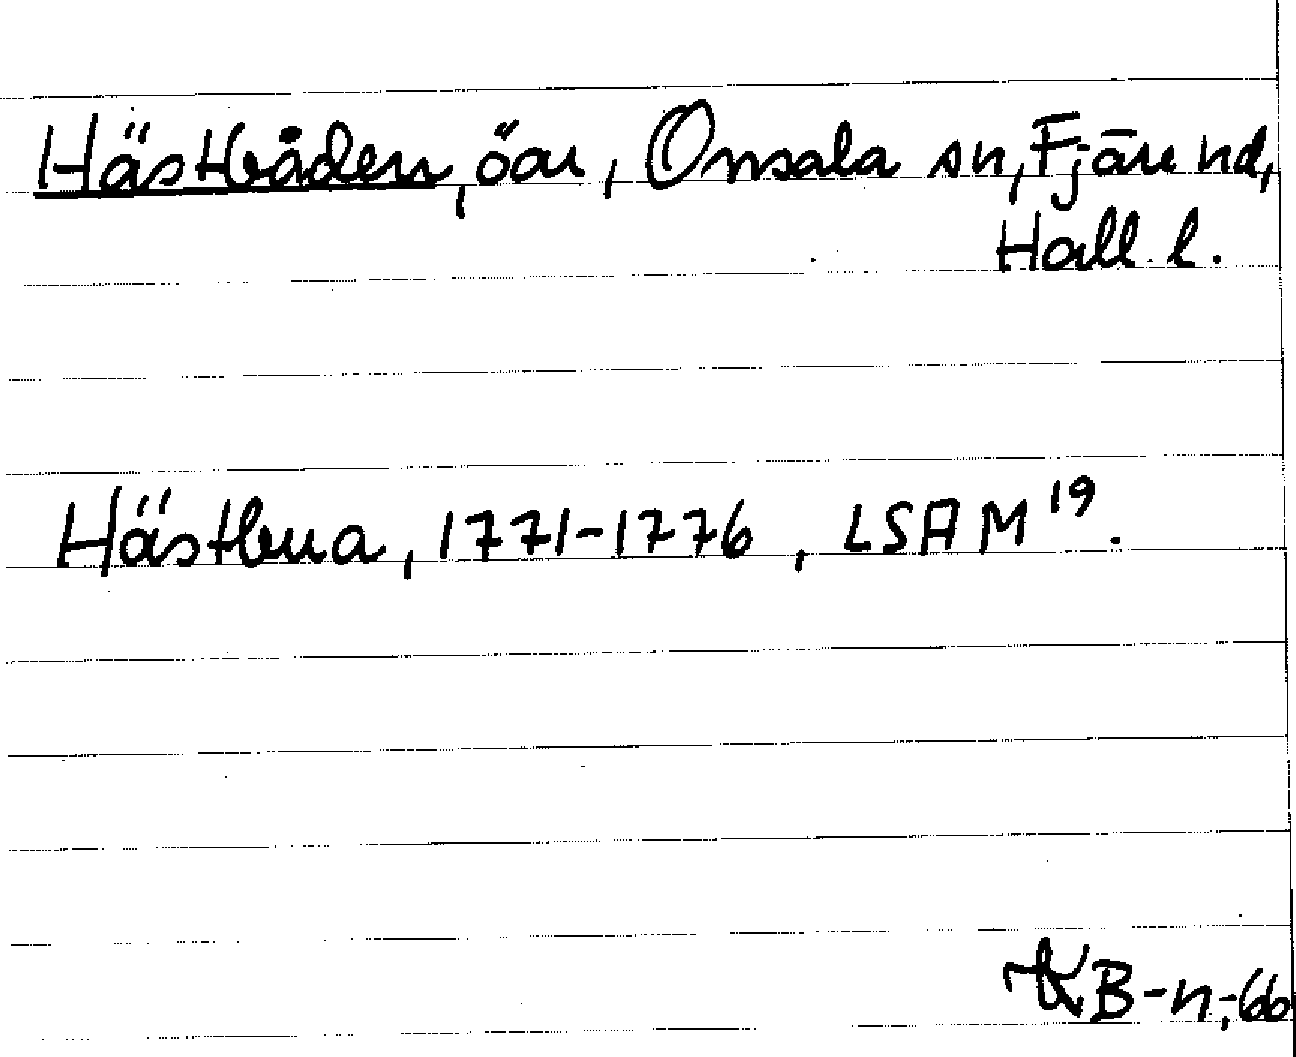 Hästbåden, öar, Onsala sn, Fjäre hd,
Hall. l.
Hästbua, 1771-1776, LSA M 19.
KB-n,-66